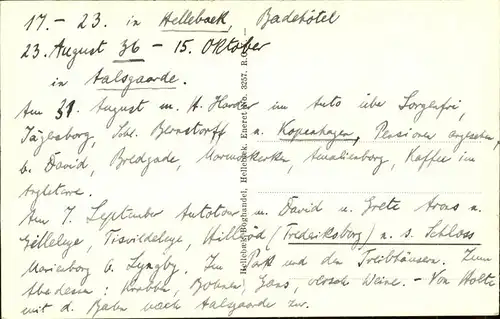 17. - 23. in Hellebaek, Badehôtel
23. August 36 - 15. Oktober
in Aalsgaarde.
Am 31. August m. H. Harder im Auto über Sorgenfri,
Jägersborg, Schl. Bernstorff n. Kopenhagen, Pensionen angesehen,
b. David, Bredgade, Marmorkirken, Amalienborg, Kaffee im
Angleterre.
Am 7. September Autotour m. David u. Grete Arons n.
Gilleleje, Tisvildeleje, Hilleröd (Frederiksborg) u. s. Schloss
Marienborg b. Lyngby. Im Park und den Treibhäusen. Zum
Abendessen: Krabben, Bohnen, Gans, Weine. - Von Holte
mit d. Bahn nach Aalsgaarde zur.
Hellebæk Boghandel, Hellebæk. Eneret No. 3257. R.